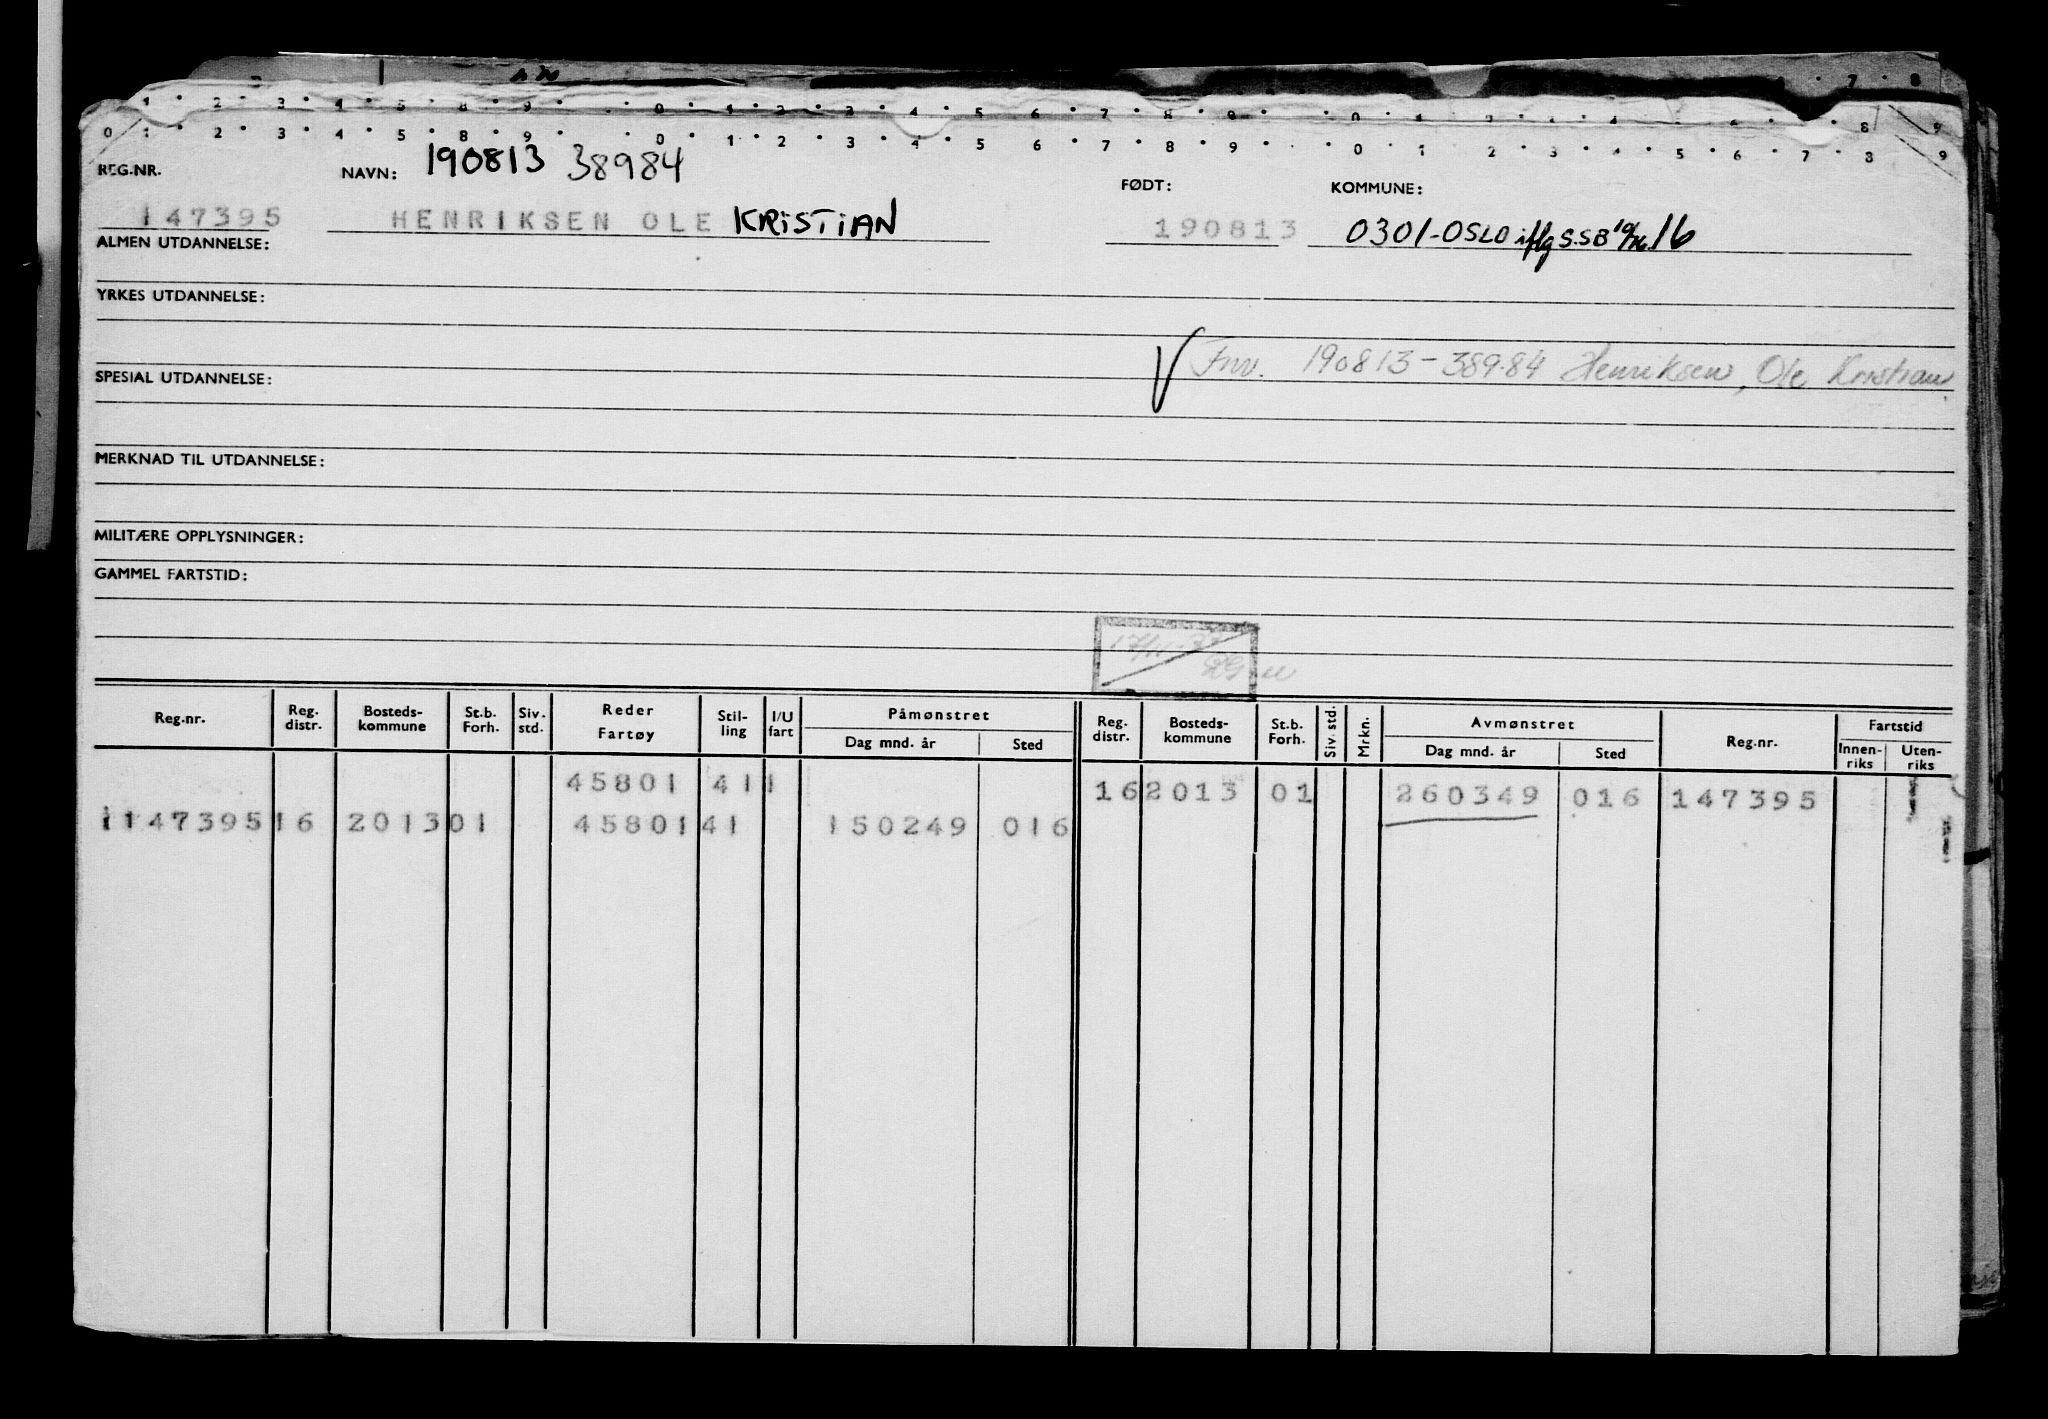 1 2 3 4 5 8 9 0 1 2 3 4 5 6 7 8 9 0 1 2 3 4 5 6 7 8 9
0 1 2 3 4 5 8 9 0 1 2 3 4 5 6 7 8 9 0 1 2 3 4 5 6 7 8 9
REG.NR. NAVN: 190813 38984 FØDT: KOMMUNE:
147395 HENRIKSEN OLE KRISTIAN 190813 0301-OSLO iflg S.SB 16
ALMEN UTDANNELSE:
YRKES UTDANNELSE:
Fnr. 190813-389.84 Henriksen, Ole Kristian
SPESIAL UTDANNELSE:
MERKNAD TIL UTDANNELSE:
MILITÆRE OPPLYSNINGER:
GAMMEL FARTSTID:
Reg.nr. Reg. distr. Bosteds-kommune St.b. Forh. Siv. std. Reder Fartøy Stil-ling I/U fart Påmønstret Dag mnd. år Sted Reg. distr. Bosteds-kommune St.b. Forh. Siv. std. Mrkn. Avmønstret Dag mnd. år Sted Reg.nr. Fartstid Innen-riks Uten-riks
45801 41 1 16 2013 01 260349 016 147395
1147395 16 2013 01 45801 41 150249 016